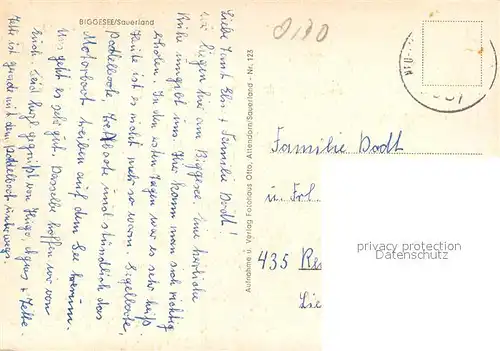 BIGGESEE/Sauerland
0180
Liebe Tante Els. + Familie Dodt!
Wir liegen hier am Biggesee. Eine herrliche
Ruhe umgibt uns. Hier kann man sich richtig
erholen. In den ersten Tagen war es sehr heiß.
Heute ist es nicht mehr so warm. Segelboote,
Paddelboote, Tretboote und stündlich das
Motorboot treiben auf dem See herum.
Uns geht es sehr gut. Dasselbe hoffen wir von
Euch. Seid herzl. gegrüßt von Hugo, Agnes + Jette.
Jette ist gerade mit dem Paddelboot unterwegs.
Aufnahme u. Verlag Fotohaus Otto, Attendorn/Sauerland - Nr. 123
Familie Dodt
u. Frl.
435 Re
privacy protection
Datenschutz